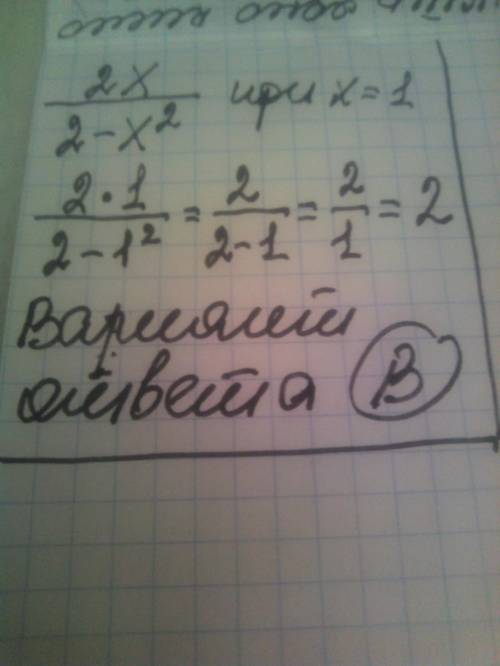 2x / 2 - x² при x = 1
2 · 1 / 2 - 1² = 2 / 2 - 1 = 2 / 1 = 2
Вариант
ответа В